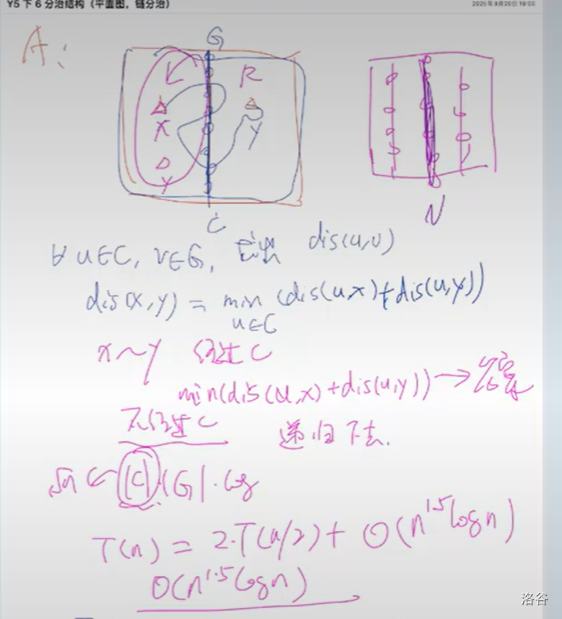 Y5 下 6 分治结构（平面图，链分治）
2025年8月20日 19:03
A:
G
L
R
X
Y
Y
C
N
∀ u∈C, v∈G, dis(u,v)
dis(x,y) = min (dis(u,x)+dis(u,y))
u∈C
x~y 经过 C
min(dis(u,x)+dis(u,y)) → 答案
不经过 C
递归下去.
√n ← |C| |G|·log
T(n) = 2·T(n/2) + O(n^1.5 log n)
O(n^1.5 log n)
洛谷